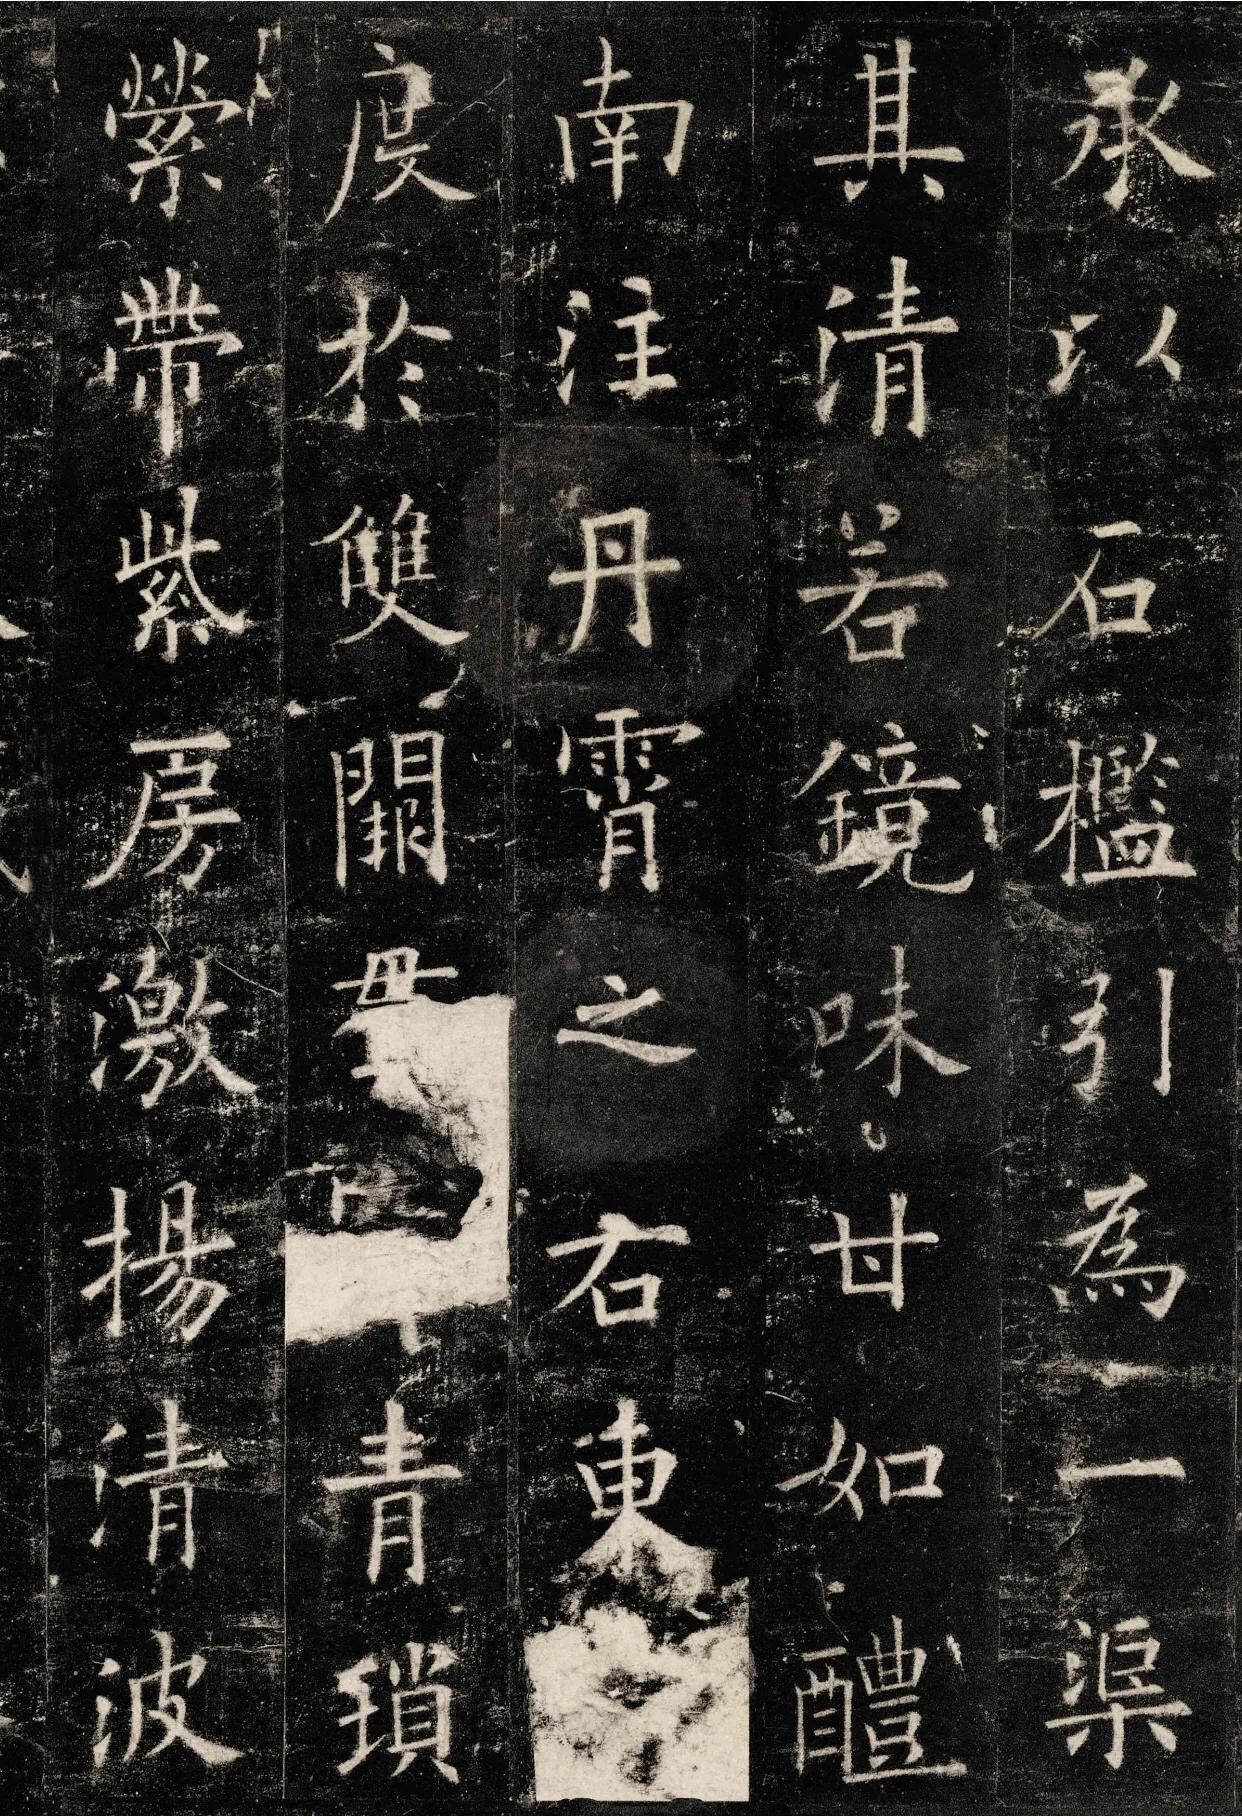 承以石檻引為一渠
其清若鏡味甘如醴
南注丹霄之右東
度於雙闕貫青瑣
縈帶紫房激揚清波